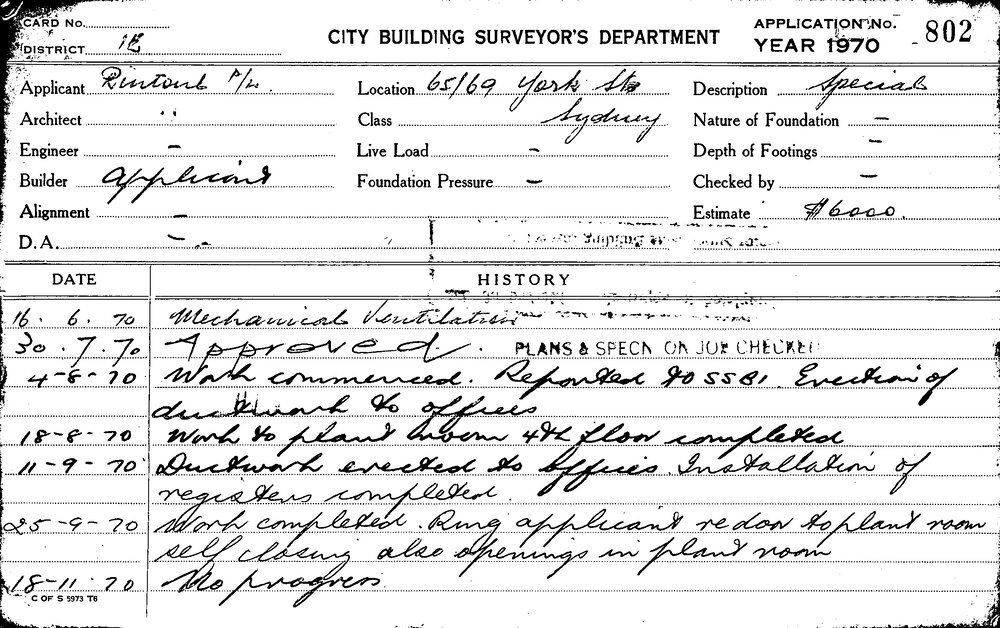 CARD No.
DISTRICT 1E
CITY BUILDING SURVEYOR'S DEPARTMENT
APPLICATION No. 802
YEAR 1970
Applicant Rintoul P/L. Location 65/69 York St Description Special
Architect " Class Sydney Nature of Foundation -
Engineer - Live Load - Depth of Footings -
Builder Applicant Foundation Pressure - Checked by -
Alignment - Estimate $6000.
D.A. -
DATE HISTORY
16. 6. 70 Mechanical Ventilation
30. 7. 70 Approved. PLANS & SPECN ON JOB CHECKED
4-8-70 Work commenced. Reported to SSBI. Erection of
ductwork to offices
18-8-70 Work to plant room 4th floor completed
11-9-70 Ductwork erected to offices. Installation of
registers completed.
25-9-70 Work completed. Ring applicant re door to plant room
self closing also openings in plant room
18-11-70 No progress
C OF S 5973 T6